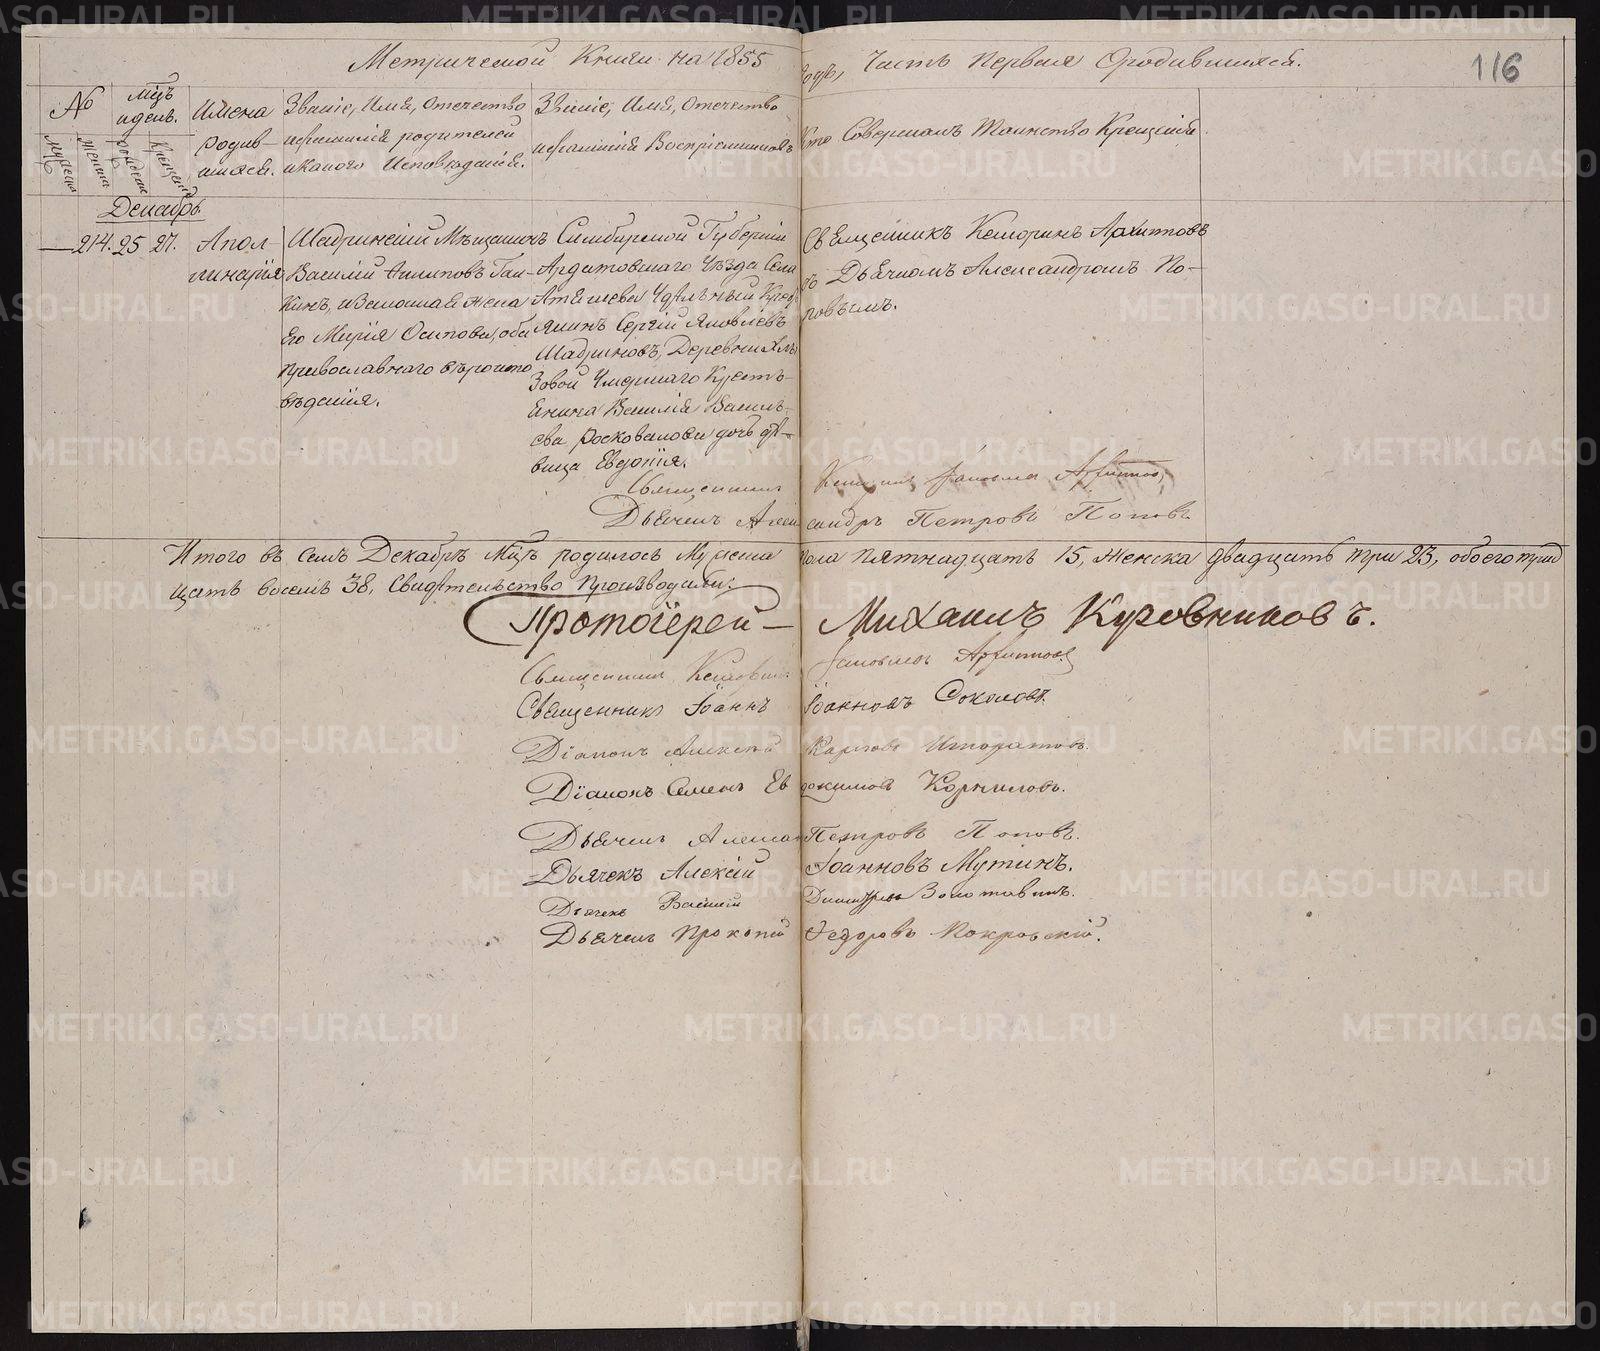 Метрической Книги на 1855 года, Часть Первая О родившихся.
116
№
мѣць и день.
Имена родив-
шихся.
Званіе, Имя, Отечество
и фамилія родителей
и какого Исповѣданія.
Званіе, Имя, Отечество
и фамилія Воспріемниковъ
Кто Совершалъ Таинство Крещенія
Мужеска
Женска
рожденія
Крещенія
Декабрь.
214. 25 27.
Апол-
линарія
Шадринскій Мѣщанинъ
Василій Филиповъ Гал-
кинъ, и Законная Жена
Его Марія Осипова, оба
православнаго вѣроиспо
вѣданія.
Симбирской Губерніи
Ардатовскаго Уѣзда Села
Атяшева Удѣльный Крест
янинъ Сергій Яковлевъ
Шадриновъ, Деревни
зовой Умершаго Кресть-
янина Василія Василь-
ева Росковалова дочь дѣ-
вица Евдокія.
Священникъ Кесаринъ Архиповъ
съ Дьячкомъ Александромъ По-
повымъ.
Священникъ
Дьячекъ Александръ Петровъ Поповъ
Итого въ семъ Декабрѣ Мцѣ родилось Мужеска пола пятнадцать 15, Женска двадцать три 23, обоего трид
цать восемь 38, Свидѣтельство Производили:
Протоіерей – Михаилъ Куровниковъ.
Священникъ
Священникъ Іоаннъ Іоанновъ Соколовъ.
Діаконъ Алексѣй Карповъ Игнатовъ.
Діаконъ Семенъ Евдокимовъ Корниловъ.
Дьячекъ Александръ Петровъ Поповъ.
Дьячекъ Алексій Іоанновъ Мутинъ.
Дьячекъ Василій Димитріевъ Золотавинъ.
Дьячекъ Прокопій Федоровъ Покровскій.
METRIKI.GASO-URAL.RU